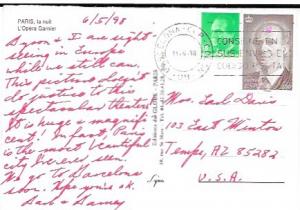 PARIS, la nuit
L'Opéra Garnier
6/5/98
& I are sight-
seeing in Europe
while we still can.
This picture doesn't
do justice to this
spectacular theater.
It is huge & magnifi-
cent! In fact, Paris
is the most beautiful
city I've ever seen.
We go to Barcelona
soon. Hope you're ok.
Barney
Mrs. Earl Davis
103 East Winton
Tempe, AZ 85282
U.S.A.